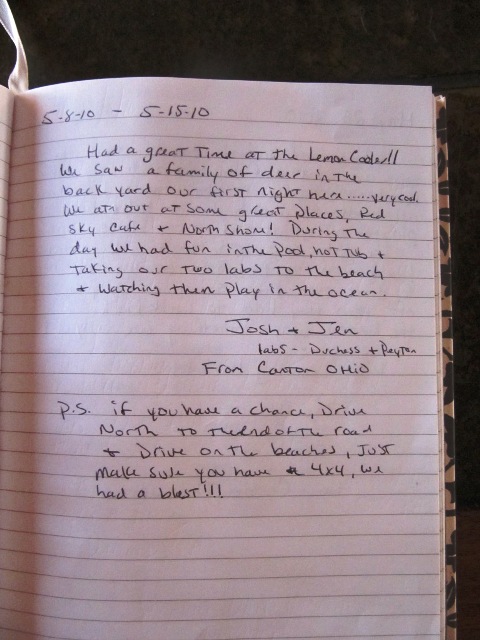 5-8-10 - 5-15-10
Had a great Time at the Lemon Cooler!!
We saw a family of deer in the
back yard our first night here.....very cool.
We ate out at some great places, Red
Sky Cafe + North Shore! During the
day we had fun in the Pool, hot Tub +
Taking our two labs to the beach
+ watching them play in the ocean.
Josh + Jen
labs - Duchess + Peyton
From Canton OHIO
P.S. if you have a chance, Drive
North to the end of the road
+ Drive on the beaches, Just
make sure you have a 4x4, we
had a blast!!!